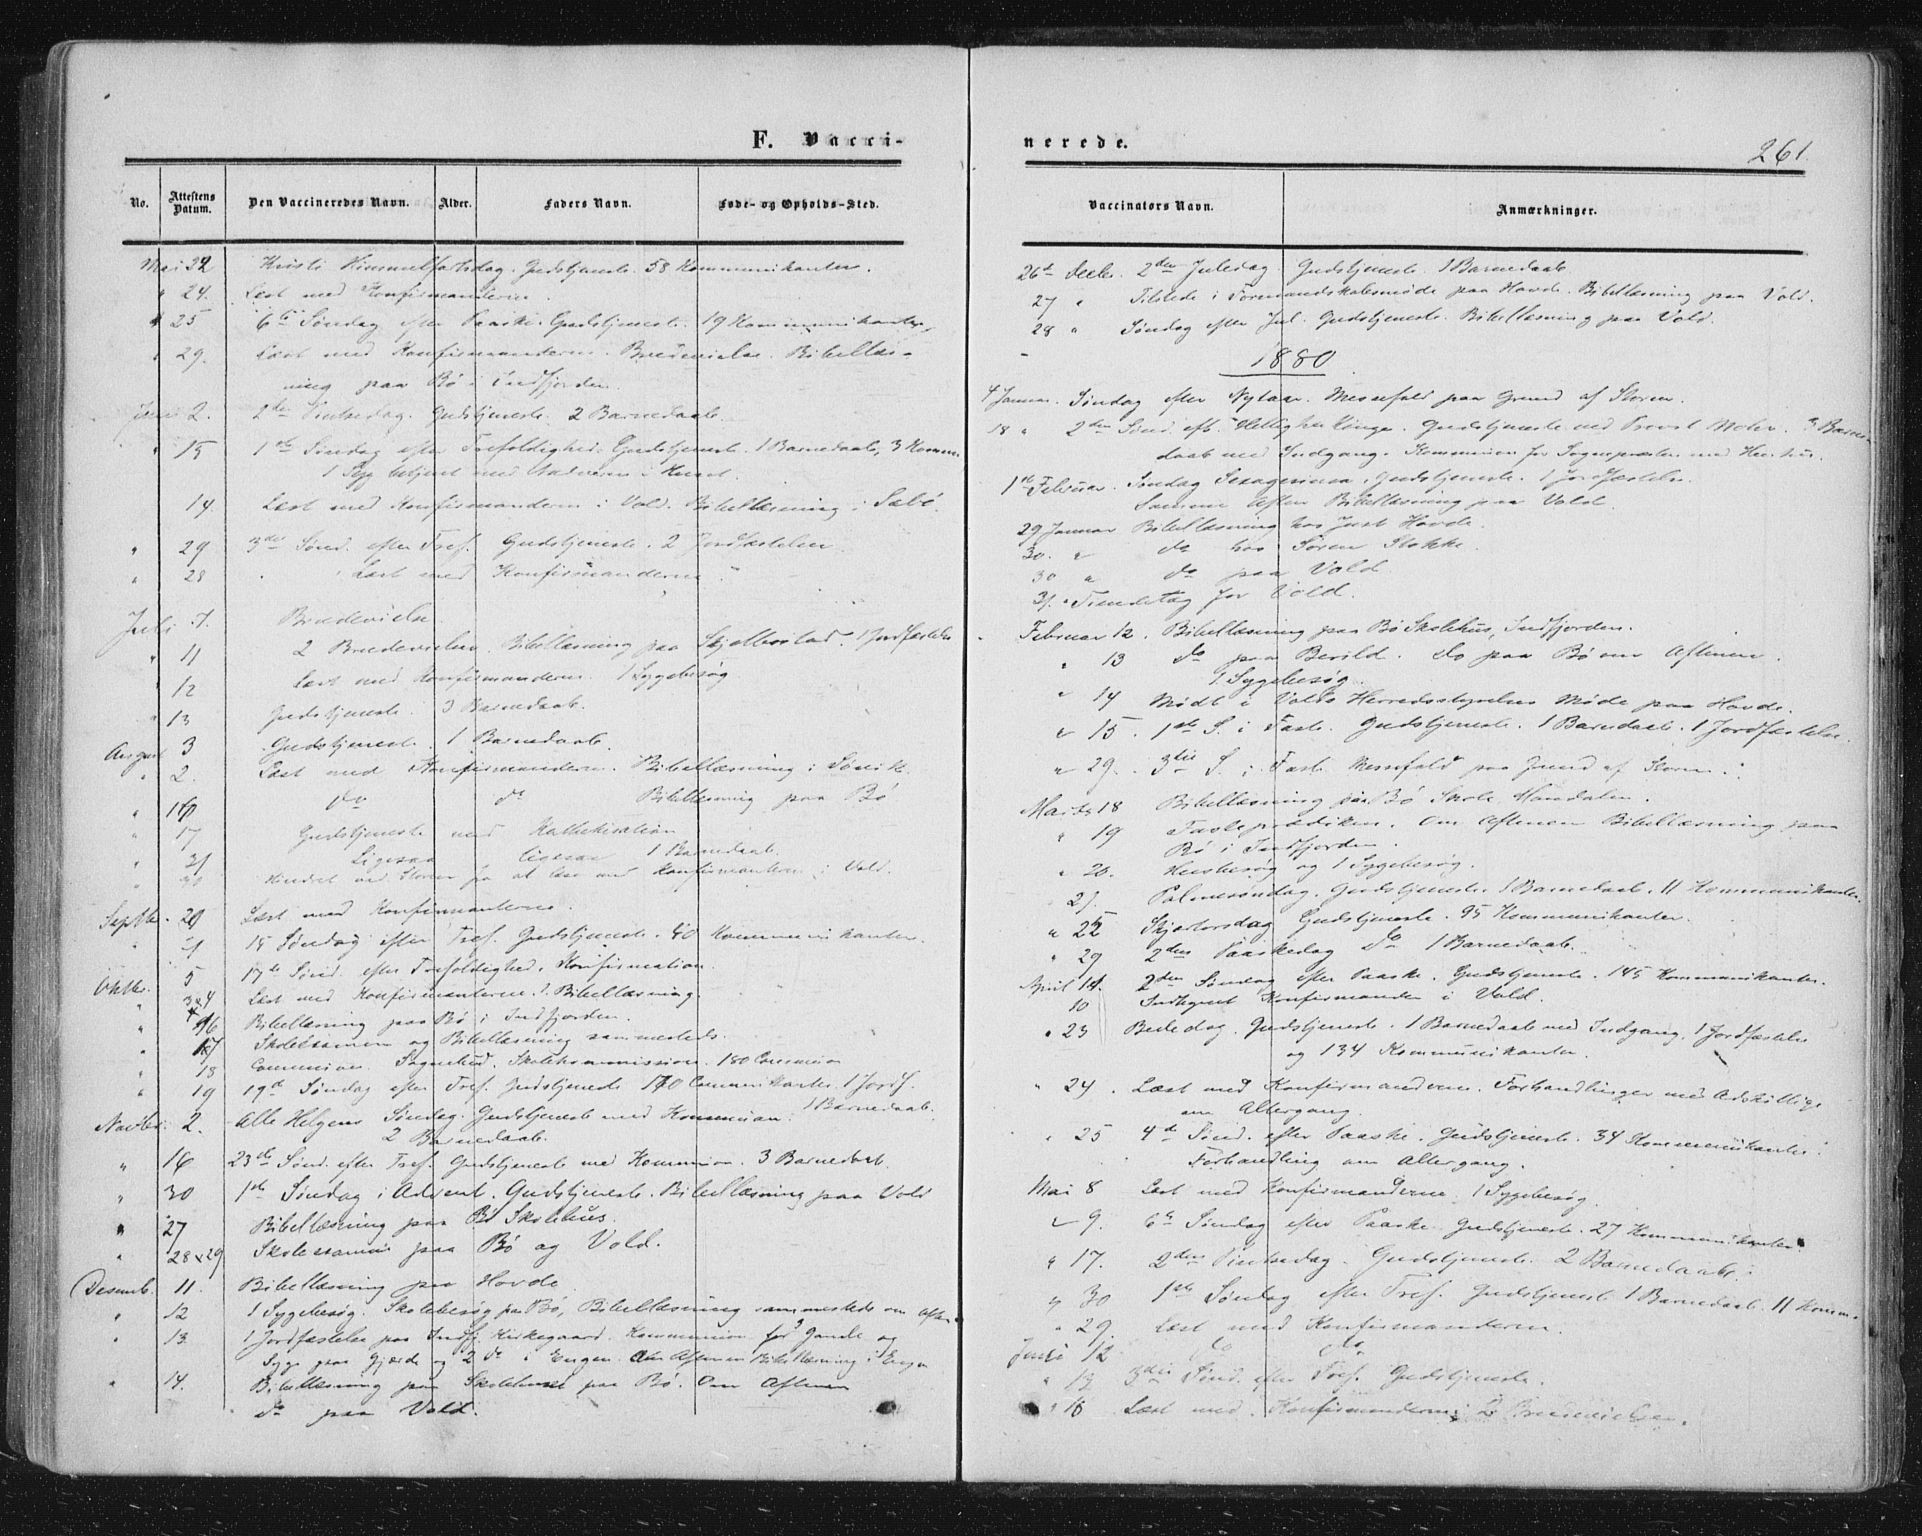 F. Vacci-
No.
Attestens Datum.
Den Vaccineredes Navn.
Alder.
Faders Navn.
Føde- og Opholds-Sted.
Mai 22 Kristi Himmelfartsdag. Gudstjeneste. 58 Kommunikanter.
" 24. Læst med Konfirmanderne.
" 25 6te Søndag efter Paaske. Gudstjeneste. 19 Kommunikanter.
" 29. Læst med Konfirmanderne. Brudevielse. Bibellæs-
ning paa Bø i Indfjorden.
Juni 2. 2den Pintsedag. Gudstjeneste. 2 Barnedaab.
" 15 1ste Søndag efter Trefoldighed. Gudstjeneste. 1 Barnedaab, 3 Komm.
1 Syg betjent med Nadveren i Huset.
14 Læst med Konfirmanderne i Vold. Bibellæsning i Sæbø.
" 29 3die Sønd. efter Tref. Gudstjeneste. 2 Jordfæstelser.
" 28 Læst med Konfirmanderne "
Juli 7. Brudevielse.
" 11 2 Brudevielser. Bibellæsning paa Skjelbostad. 1 Jordfæstelse
" 12 Læst med Konfirmanderne. 1 Sygebesøg
" 13 Gudstjeneste. 3 Barnedaab.
August 3 Gudstjeneste. 1 Barnedaab.
" 2. Læst med Konfirmanderne. Bibellæsning i Isvik.
" 16 do do Bibellæsning paa Bø
" 17 Gudstjeneste med Kathekisation
" 31 Ligesaa Ligesaa 1 Barnedaab.
" 30 Hindret ved Storm fra at læse med Konfirmanterne i Vold.
Septbr. 20 Læst med Konfirmanterne.
" 21 15 Søndag efter Tref. Gudstjeneste. 40 Kommunikanter.
Oktbr. 5 17de Sønd. efter Trefoldighed. Konfirmation.
" 3x4 Læst med Konfirmanterne. 1 Bibellæsning.
" 16 Bibellæsning paa Bø i Indfjorden.
" 17 Skoleexamen og Bibellæsning sammesteds.
" 18 Communion. Sognebud. Skolekommission. 180 Communion
" 19 19de Søndag efter Tref. Gudstjeneste 170 Communikanter. 1 Jordf.
1 Barnedaab.
Novbr. 2. Alle Helgens Søndag. Gudstjeneste med Kommunion.
2 Barnedaab.
" 16 23de Sønd. efter Tref. Gudstjeneste med Kommunion. 3 Barnedaab.
" 30 1ste Søndag i Advent. Gudstjeneste. Bibellæsning paa Vold
" 27 Bibellæsning paa Bø Skolehus.
" 28x29 Skoleexamen paa Bø og Vold.
Desemb. 11. Bibellæsning paa Hovde
" 12 1 Sygebesøg. Skolebesøg paa Bø, Bibellæsning sammesteds om Aften
" 13 1 Jordfæstelse paa Indfj. Kirkegaard. Kommunion for 3 Gamle og
Syge paa Gjerde og 2 do i Engen. Om Aftenen Bibellæsning i Engen
" 14. Bibellæsning paa Skolehuset paa Bø. Om Aftenen
do paa Vold.
nerede.
261.
Vaccinatørs Navn.
Anmærkninger.
26de Decbr. 2den Juledag Gudstjeneste. 1 Barnedaab.
27 " Tilstede i Formandskabsmøde paa Hovde. Bibellæsning paa Vold.
28 " Søndag efter Jul. Gudstjeneste. Bibellæsning paa Vold.
1880
4 Januar. Søndag efter Nytaar. Messefald paa Grund af Storm.
18 " 2den Sønd. eft. Hellig 3 Konge. Gudstjeneste ved Provst Mohr. 3 Barne-
daab med Indgang. Kommunion for Sognepræsten med
1ste Februar. Søndag Sexagesima. Gudstjeneste. 1 Jordfæstelse.
Samme Aften Bibellæsning paa Vold.
29 Januar Bibellæsning hos Just Hovde.
30. " do hos Søren Stokke.
30 " do paa Vold
31. " Tiendetag for Vold.
Februar 12. Bibellæsning paa Bø Skolehus, Indfjorden.
" 13 do paa Berild. do paa Bø om Aftenen.
1 Sygebesøg.
" 14 Mødt i Volds Herredsstyrelses Møde paa Hovde.
" 15. 1ste S. i Faste. Gudstjeneste. 1 Barnedaab. 1 Jordfæstelse.
" 29. 3die S. i Faste Messefald paa Grund af Storm.
Marts 18 Bibellæsning paa Bø Skole, Mandalen.
" 19 Fasteprædiken. Om Aftenen Bibellæsning paa
Bø i Indfjorden.
" 20. Husbesøg og 1 Sygebesøg.
21. Palmesøndag. Gudstjeneste. 1 Barnedaab. 11 Kommunikanter.
" 25 Skjærtorsdag Gudstjeneste. 95 Kommunikanter.
" 29 2den Paaskedag do 1 Barnedaab.
April 11. 2den Søndag efter Paaske. Gudstjeneste. 145 Kommunikanter.
10 Indtegnet Konfirmanden i Vold.
" 23 Bededag. Gudstjeneste. 1 Barnedaab med Indgang, 1 Jordfæstelse
og 134 Kommunikanter.
" 24. Læst med Konfirmanderne. Forhandlinger med Adskillige
om Altergang.
" 25 4de Sønd. efter Paaske. Gudstjeneste. 34 Kommunikanter.
Forhandling om Altergang.
Mai 8 Læst med Konfirmanderne. 1 Sygebesøg.
" 9. 6te Søndag efter Paaske. Gudstjeneste. 27 Kommunikanter.
" 17. 2den Pintsedag. Gudstjeneste. 2 Barnedaab.
" 30 1ste Søndag efter Tref. Gudstjeneste 1 Barnedaab. 11 Komm.
" 29. Læst med Konfirmanderne.
Juni 12 do do
" 13 3die Sønd. efter Tref. Gudstjeneste.
" 16 Læst med Konfirmanderne. 2 Brudevielser.